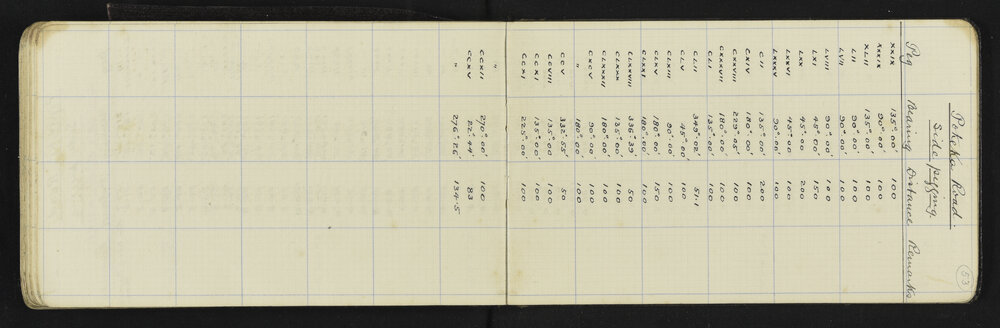 53
Pokeka Road.
Side pegging.
Peg Bearing Distance Remarks
XXIX 135°.00' 100
XXXIX 90°.00' 100
XLII 135°.00' 100
LII 90°.00' 100
LVII 90°.00' 100
LVIII 90°.00' 100
LXI 45°.00' 150
LXX 45°.00 200
LXXVI 45°.00 100
LXXXV 90°.00' 100
CII 135°.00' 200
CXIV 180°.00' 100
CXXVIII 229°.05' 100
CXXXVIII 180°.00' 100
CLI 135°.00' 100
CLII 349°.02' 51.1
CLV 45°.00 100
CLXIII 90°.00' 100
CLXV 180°.00' 150
CLXXI 180°.00' 100
CLXXVIII 336°.39' 50
CLXXX 135°.00' 100
CLXXXII 180°.00' 100
CXCV 90°.00' 100
" 180°.00' 100
CCV 332°.55' 50
CCVIII 135°.00' 100
CCXI 135°.00' 100
CCXI 225°.00' 100
CCXII 270°.00' 100
CCXV 22°.44' 83
" 276°.26' 134.5